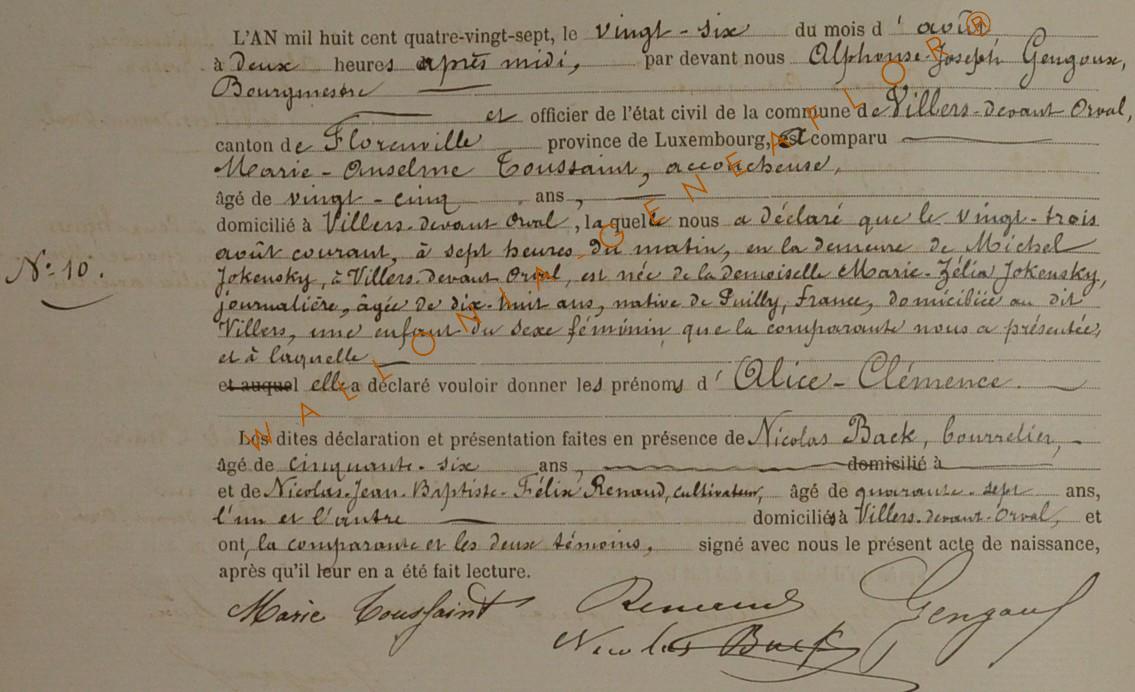 L'AN mil huit cent quatre-vingt-sept, le vingt-six du mois d'août,
à Deux heures après midi, par devant nous Alphonse-Joseph Gengoux,
Bourgmestre
et officier de l'état civil de la commune de Villers-devant Orval,
canton de Florenville province de Luxembourg, est comparu
Marie-Anselme Toussaint, accoucheuse,
âgé de vingt-cinq ans,
domicilié à Villers-devant Orval, laquelle nous a déclaré que le vingt-trois
août courant, à sept heures du matin, en la demeure de Michel
N° 10.
Jokensky, à Villers-devant Orval, est née de la demoiselle Marie-Zélia Jokensky,
journalière, âgée de dix-huit ans, native de Puilly, France, domiciliée au dit
Villers, une enfant du sexe féminin que la comparante nous a présentée,
et à laquelle
et auquel elle a déclaré vouloir donner les prénoms d'Alice-Clémence.
Les dites déclaration et présentation faites en présence de Nicolas Back, bourrelier,
âgé de cinquante-six ans, domicilié à
et de Nicolas-Jean-Baptiste-Félix Renaud, cultivateur, âgé de quarante-sept ans,
l'un et l'autre domiciliés à Villers-devant-Orval, et
ont, la comparante et les deux témoins, signé avec nous le présent acte de naissance,
après qu'il leur en a été fait lecture.
Marie Toussaint Renaud Gengoux
Nicolas Back
WALLONIA-GENEAPLOR®